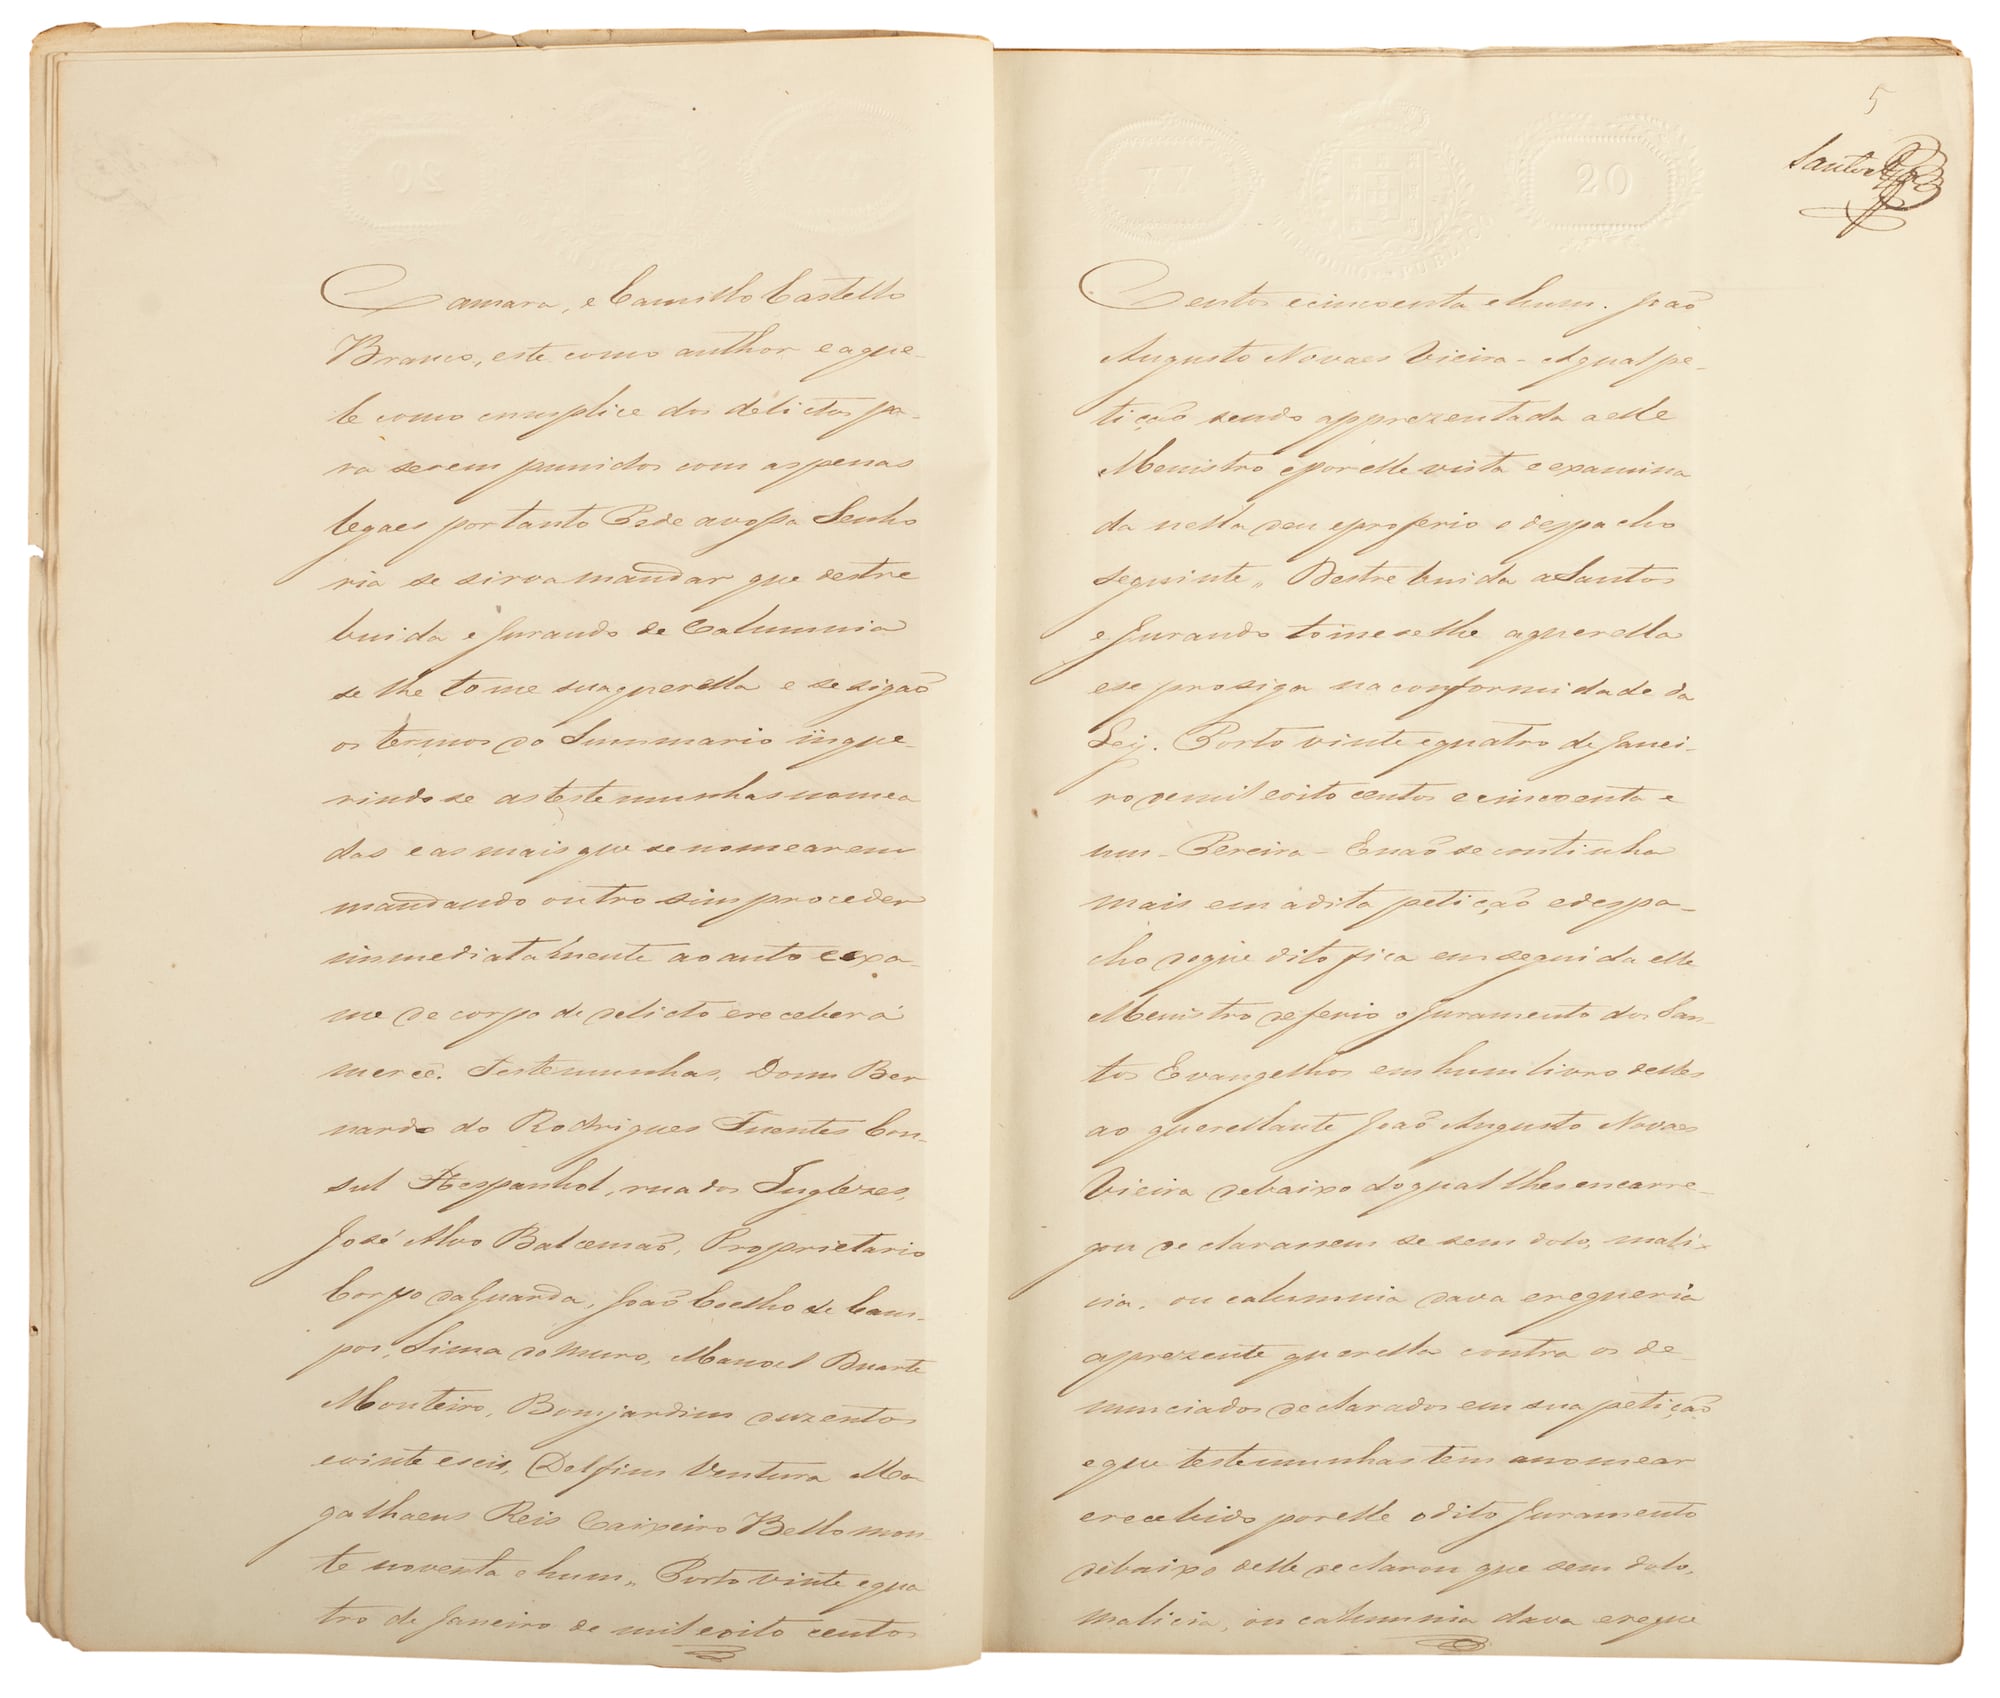 Camara, e Camillo Castello
Branco, este como author e aque-
le como cumplice dos delictos pa-
ra serem punidos com as penas
legaes portanto Pede a vossa Senho
ria se sirva mandar que destre
buida e jurando de Calumnia
se lhe tome sua querella e se sigão
os termos do Summario inque-
rindo se as testemunhas nomea
das e as mais que se nomearem
mandando outro sim proceder
immediatamente ao auto e exa-
me de corpo de delicto e receberá
mercê. Testemunhas, Dom Ber
nardo do Rodrigues Fuentes Con-
sul Hespanhol, rua dos Inglezes,
José Alvo Balcemão, Proprietario
Corpo da Guarda, João Coelho de Cam-
pos, Sima do Muro, Manoel Duarte
Monteiro, Bomjardim duzentos
e vinte e seis, Delfim Ventura Ma-
galhaens Reis Caixeiro Bellomon
te noventa e hum, Porto vinte e qua
tro de Janeiro de mil e oito centos
5
Santos
20
THESOURO PUBLICO
Centos e cincoenta e hum. João
Augusto Novaes Vieira - A qual pe-
tição sendo apprezentada a elle
Menistro e por elle vista e examina
da nella deu e proferio o despacho
seguinte „ Destrebuida a Santos
e Jurando tomeselhe a querella
e se prosiga na conformidade da
Ley. Porto vinte e quatro de Janei-
ro de mil e oito centos e cincoenta e
um - Pereira - E não se continha
mais em a dita petição e despa-
cho de que dito fica em seguida elle
Menistro deferio o Juramento dos San-
tos Evangelhos em hum livro delles
ao querellante João Augusto Novaes
Vieira debaixo do qual lhes encarre-
gou declarassem se sem dolo, mali-
cia, ou calumnia dava e requeria
a prezente querella contra os de-
nunciados declarados em sua petição
e que testemunhas tem a nomear
e recebido por elle o dito Juramento
debaixo delle declarou que sem dolo,
malicia, ou calumnia dava e reque